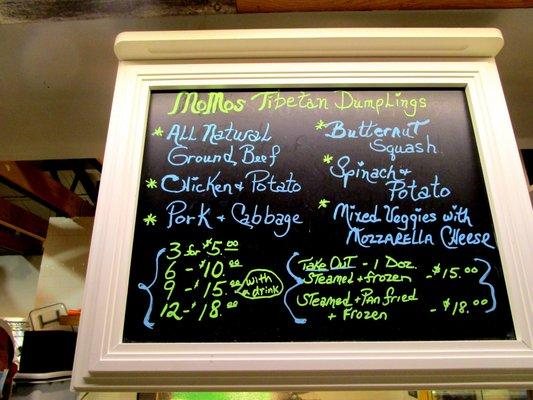 MoMos Tibetan Dumplings
* All Natural
Ground Beef
* Chicken & Potato
* Pork & Cabbage
* Butternut
Squash
* Spinach &
Potato
* Mixed Veggies with
Mozzarella Cheese
3 for $5.00
6 - $10.00
9 - $15.00
12 - $18.00
with
a drink
Take Out - 1 Doz.
Steamed + frozen - $15.00
Steamed + Pan fried
+ Frozen - $18.00